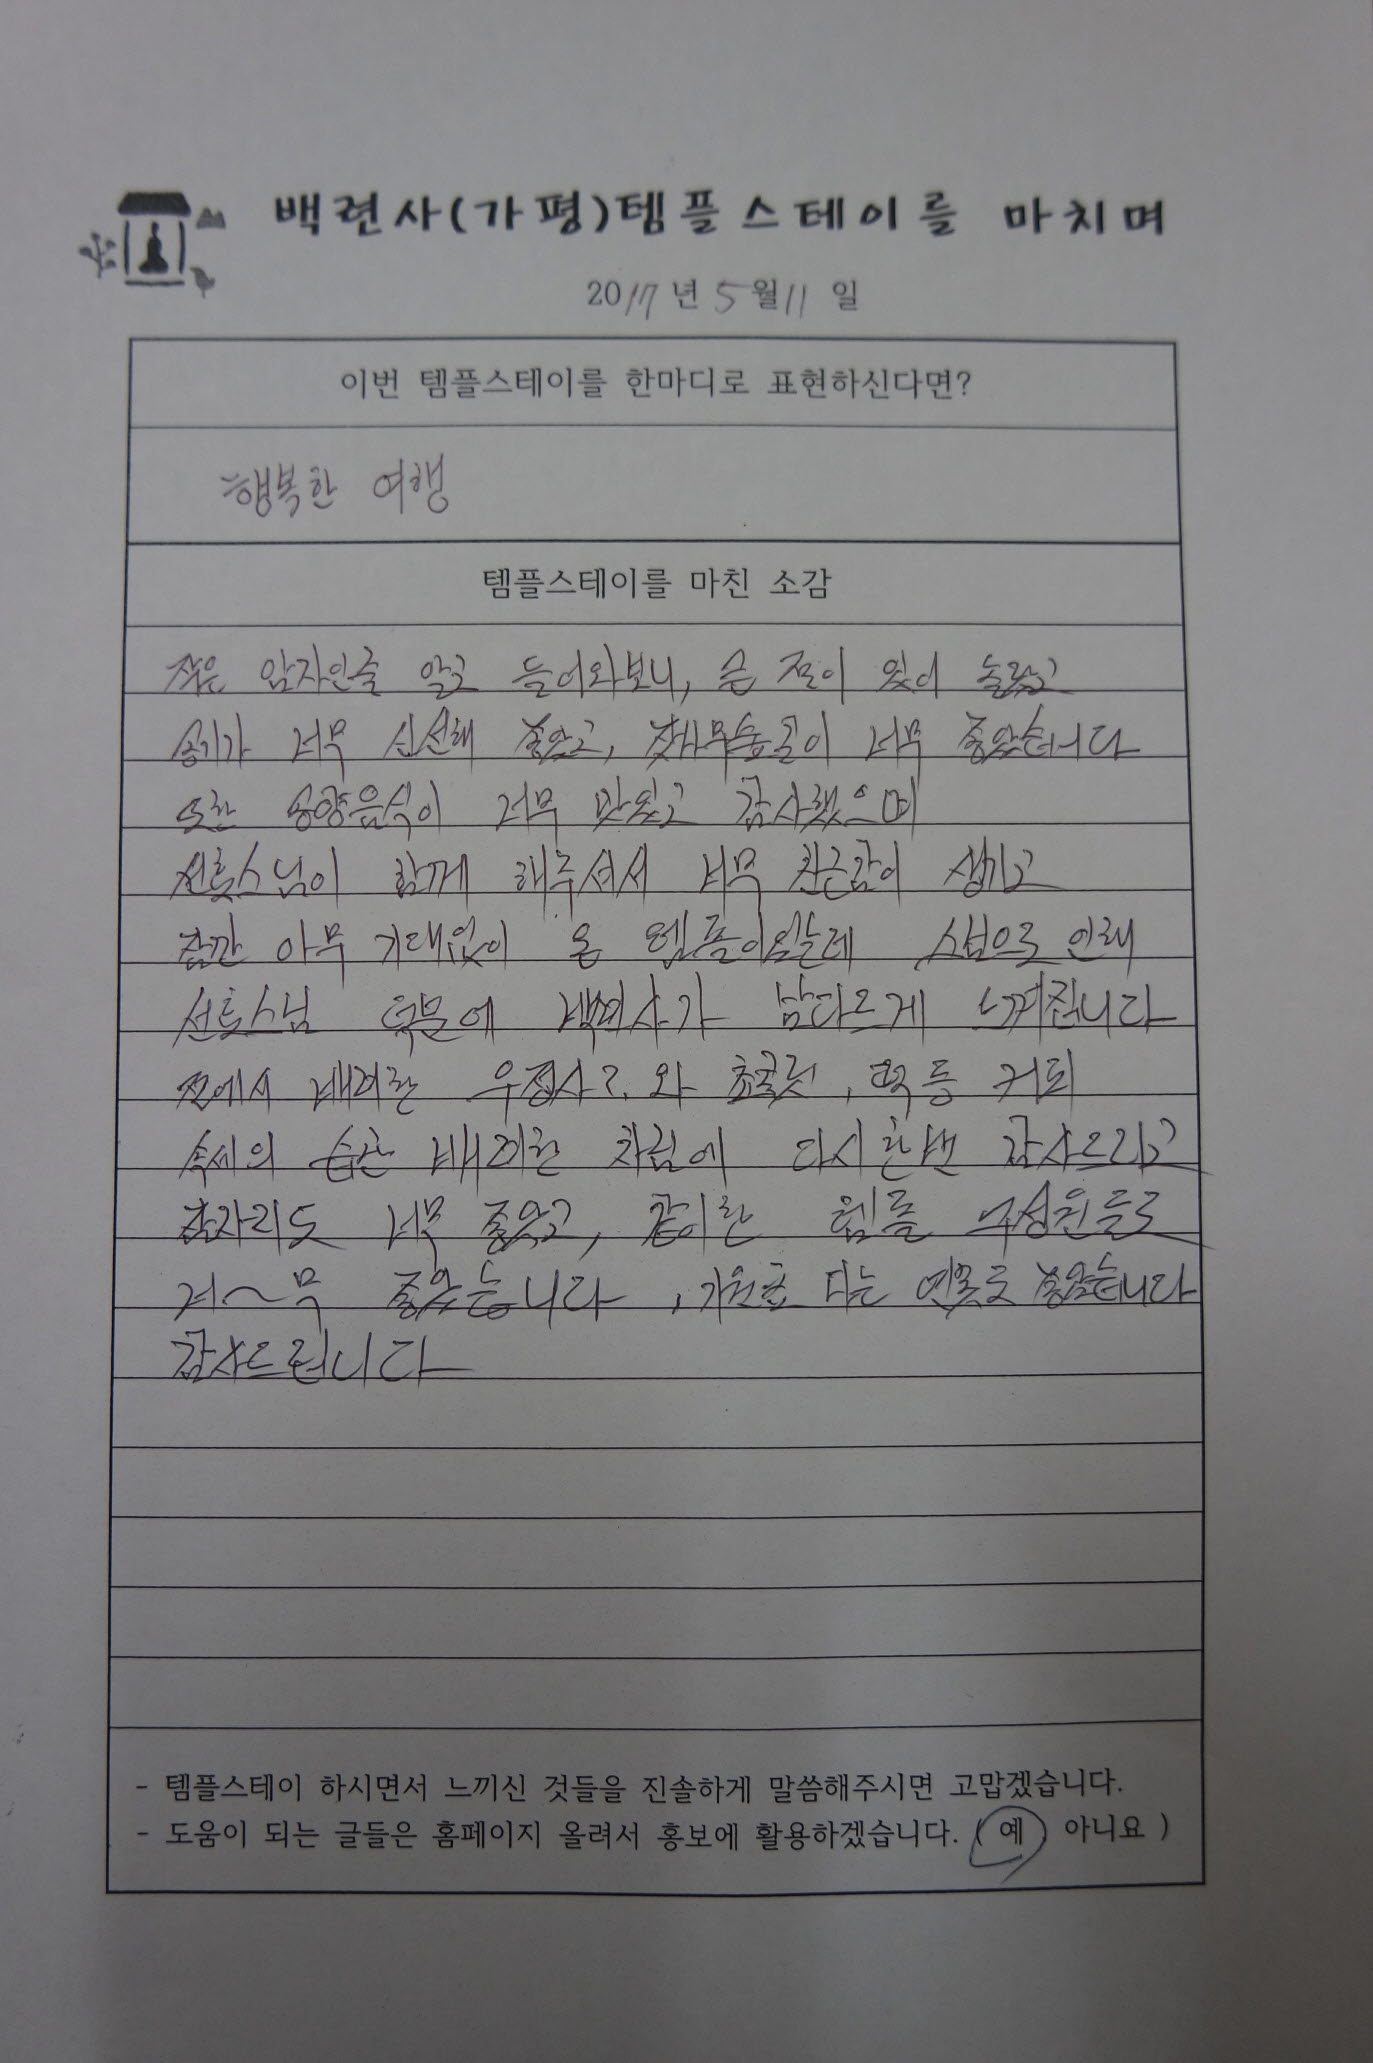 백련사(가평)템플스테이를 마치며
2017년 5월 11일
이번 템플스테이를 한마디로 표현하신다면?
행복한 여행
템플스테이를 마친 소감
작은 암자인줄 알고 들어와보니, 큰 절이 있어 놀랐고
공기가 너무 신선해 좋았고, 잣나무숲길이 너무 좋았습니다
또한 공양음식이 너무 맛있고 감사했으며
선홋스님이 함께 해주셔서 너무 친근감이 생기고
잠깐 아무 기대없이 온 템플이었는데 스님으로 인해
스님 덕분에 백련사가 남다르게 느껴집니다
절에서 배려한 와 초콜릿, 떡등 커피
속세의 습관 배려한 차림에 다시한번 감사드리고
잠자리도 너무 좋았고, 같이한 템플 구성원들도
너~무 좋았습니다, 다는 연꽃도 좋았습니다
감사드립니다
- 템플스테이 하시면서 느끼신 것들을 진솔하게 말씀해주시면 고맙겠습니다.
- 도움이 되는 글들은 홈페이지 올려서 홍보에 활용하겠습니다. ( 예 아니요 )